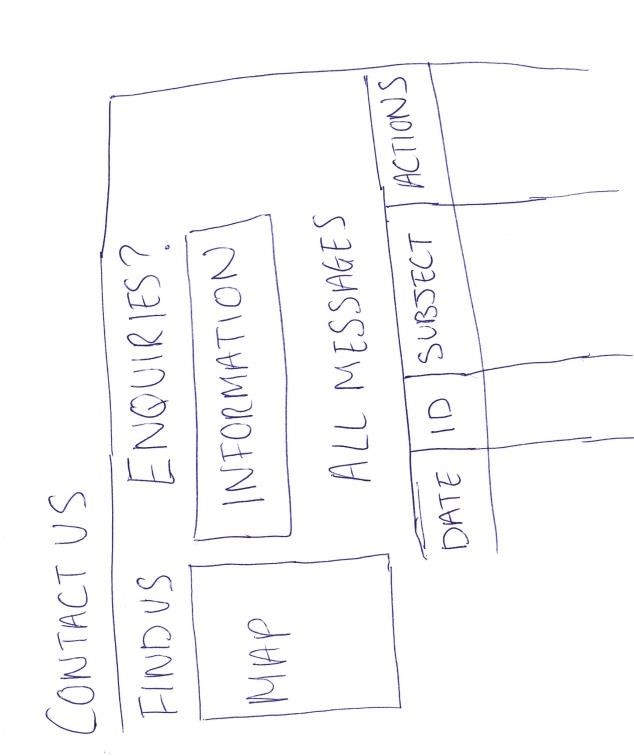 CONTACT US
FIND US
ENQUIRIES?
MAP
INFORMATION
ALL MESSAGES
DATE ID SUBJECT ACTIONS